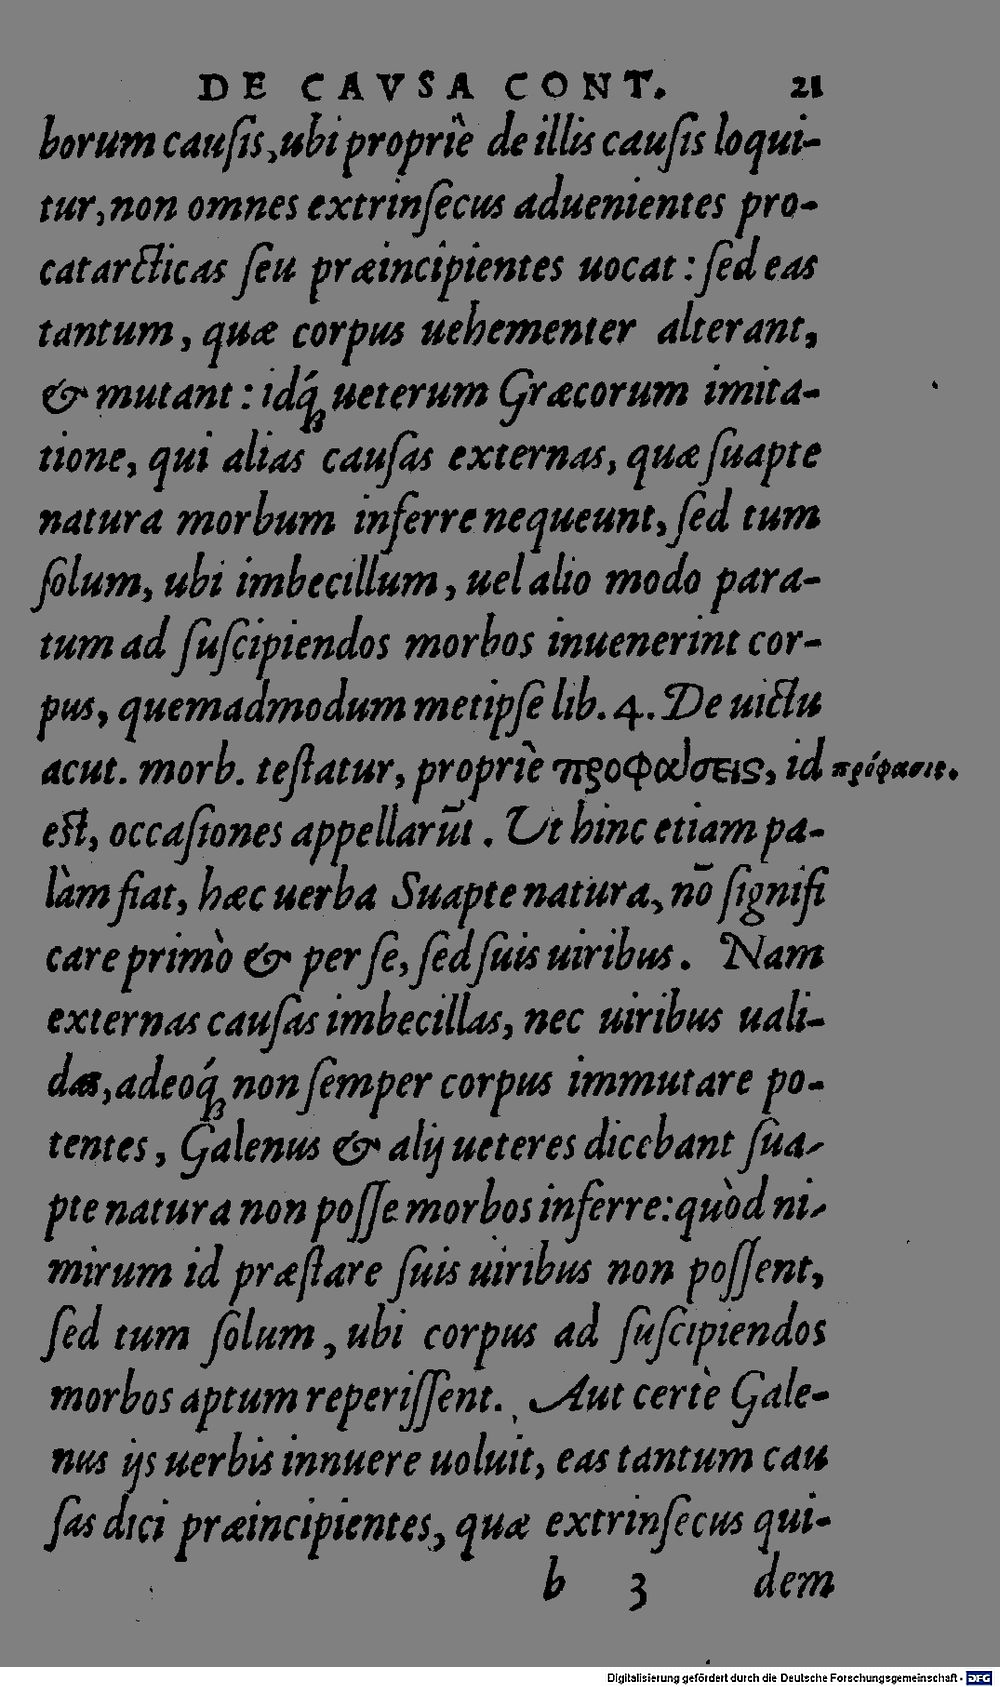 DE CAVSA CONT. 21
borum cauſis, ubi propriè de illis cauſis loqui-
tur, non omnes extrinſecus aduenientes pro-
catarcticas ſeu præincipientes uocat: ſed eas
tantum, quæ corpus uehementer alterant,
& mutant: idq́ꝫ ueterum Græcorum imita-
tione, qui alias cauſas externas, quæ ſuapte
natura morbum inferre nequeunt, ſed tum
ſolum, ubi imbecillum, uel alio modo para-
tum ad ſuſcipiendos morbos inuenerint cor-
pus, quemadmodum metipſe lib. 4. De uictu
acut. morb. teſtatur, propriè προφάσεις, id πρόφασις.
eſt, occaſiones appellarūt. Ut hinc etiam pa-
làm fiat, hæc uerba Suapte natura, nō ſignifi
care primò & per ſe, ſed ſuis uiribus. Nam
externas cauſas imbecillas, nec uiribus uali-
das, adeoq́ꝫ non ſemper corpus immutare po-
tentes, Galenus & alij ueteres dicebant ſua-
pte natura non poſſe morbos inferre: quòd ni-
mirum id præſtare ſuis uiribus non poſſent,
ſed tum ſolum, ubi corpus ad ſuſcipiendos
morbos aptum reperiſſent. Aut certè Gale-
nus ijs uerbis innuere uoluit, eas tantum cau
ſas dici præincipientes, quæ extrinſecus qui-
b 3 dem
Digitalisierung gefördert durch die Deutsche Forschungsgemeinschaft - DFG